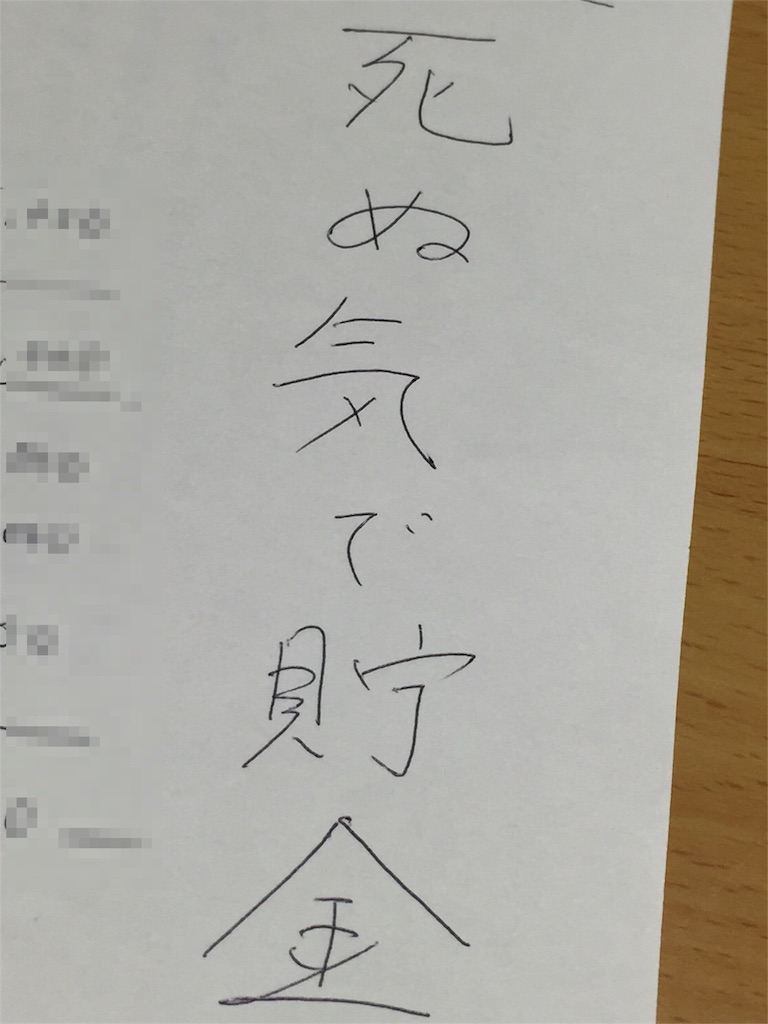 死ぬ気で貯金